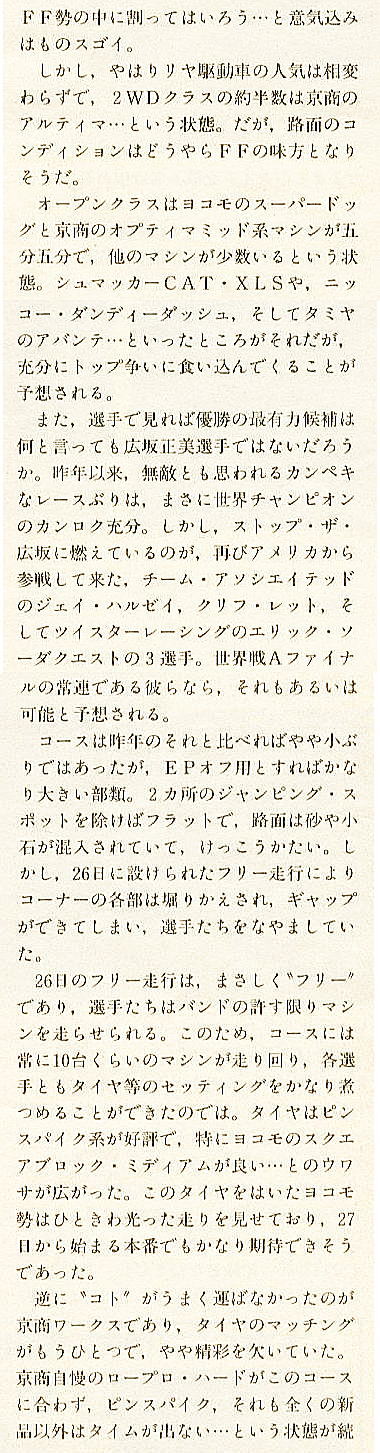 ＦＦ勢の中に割ってはいろう…と意気込み
はものスゴイ。
　しかし，やはりリヤ駆動車の人気は相変
わらずで，２ＷＤクラスの約半数は京商の
アルティマ…という状態。だが，路面のコ
ンディションはどうやらＦＦの味方となり
そうだ。
　オープンクラスはヨコモのスーパードッ
グと京商のオプティマミッド系マシンが五
分五分で，他のマシンが少数いるという状
態。シュマッカーＣＡＴ・ＸＬＳや，ニッ
コー・ダンディーダッシュ，そしてタミヤ
のアバンテ…といったところがそれだが，
充分にトップ争いに食い込んでくることが
予想される。
　また，選手で見れば優勝の最有力候補は
何と言っても広坂正美選手ではないだろう
か。昨年以来，無敵とも思われるカンペキ
なレースぶりは，まさに世界チャンピオン
のカンロク充分。しかし，ストップ・ザ・
広坂に燃えているのが，再びアメリカから
参戦して来た，チーム・アソシエイテッド
のジェイ・ハルゼイ，クリフ・レット，そ
してツイスターレーシングのエリック・ソ
ーダクエストの３選手。世界戦Ａファイナ
ルの常連である彼らなら，それもあるいは
可能と予想される。
　コースは昨年のそれと比べればやや小ぶ
りではあったが，ＥＰオフ用とすればかな
り大きい部類。２カ所のジャンピング・ス
ポットを除けばフラットで，路面は砂や小
石が混入されていて，けっこうかたい。し
かし，26日に設けられたフリー走行により
コーナーの各部は堀りかえされ，ギャップ
ができてしまい，選手たちをなやましてい
た。
　26日のフリー走行は，まさしく〝フリー〞
であり，選手たちはバンドの許す限りマシ
ンを走らせられる。このため，コースには
常に10台くらいのマシンが走り回り，各選
手ともタイヤ等のセッティングをかなり煮
つめることができたのでは。タイヤはピン
スパイク系が好評で，特にヨコモのスクエ
アブロック・ミディアムが良い…とのウワ
サが広がった。このタイヤをはいたヨコモ
勢はひときわ光った走りを見せており，27
日から始まる本番でもかなり期待できそう
であった。
　逆に〝コト〞がうまく運ばなかったのが
京商ワークスであり，タイヤのマッチング
がもうひとつで，やや精彩を欠いていた。
京商自慢のロープロ・ハードがこのコース
に合わず，ピンスパイク，それも全くの新
品以外はタイムが出ない…という状態が続